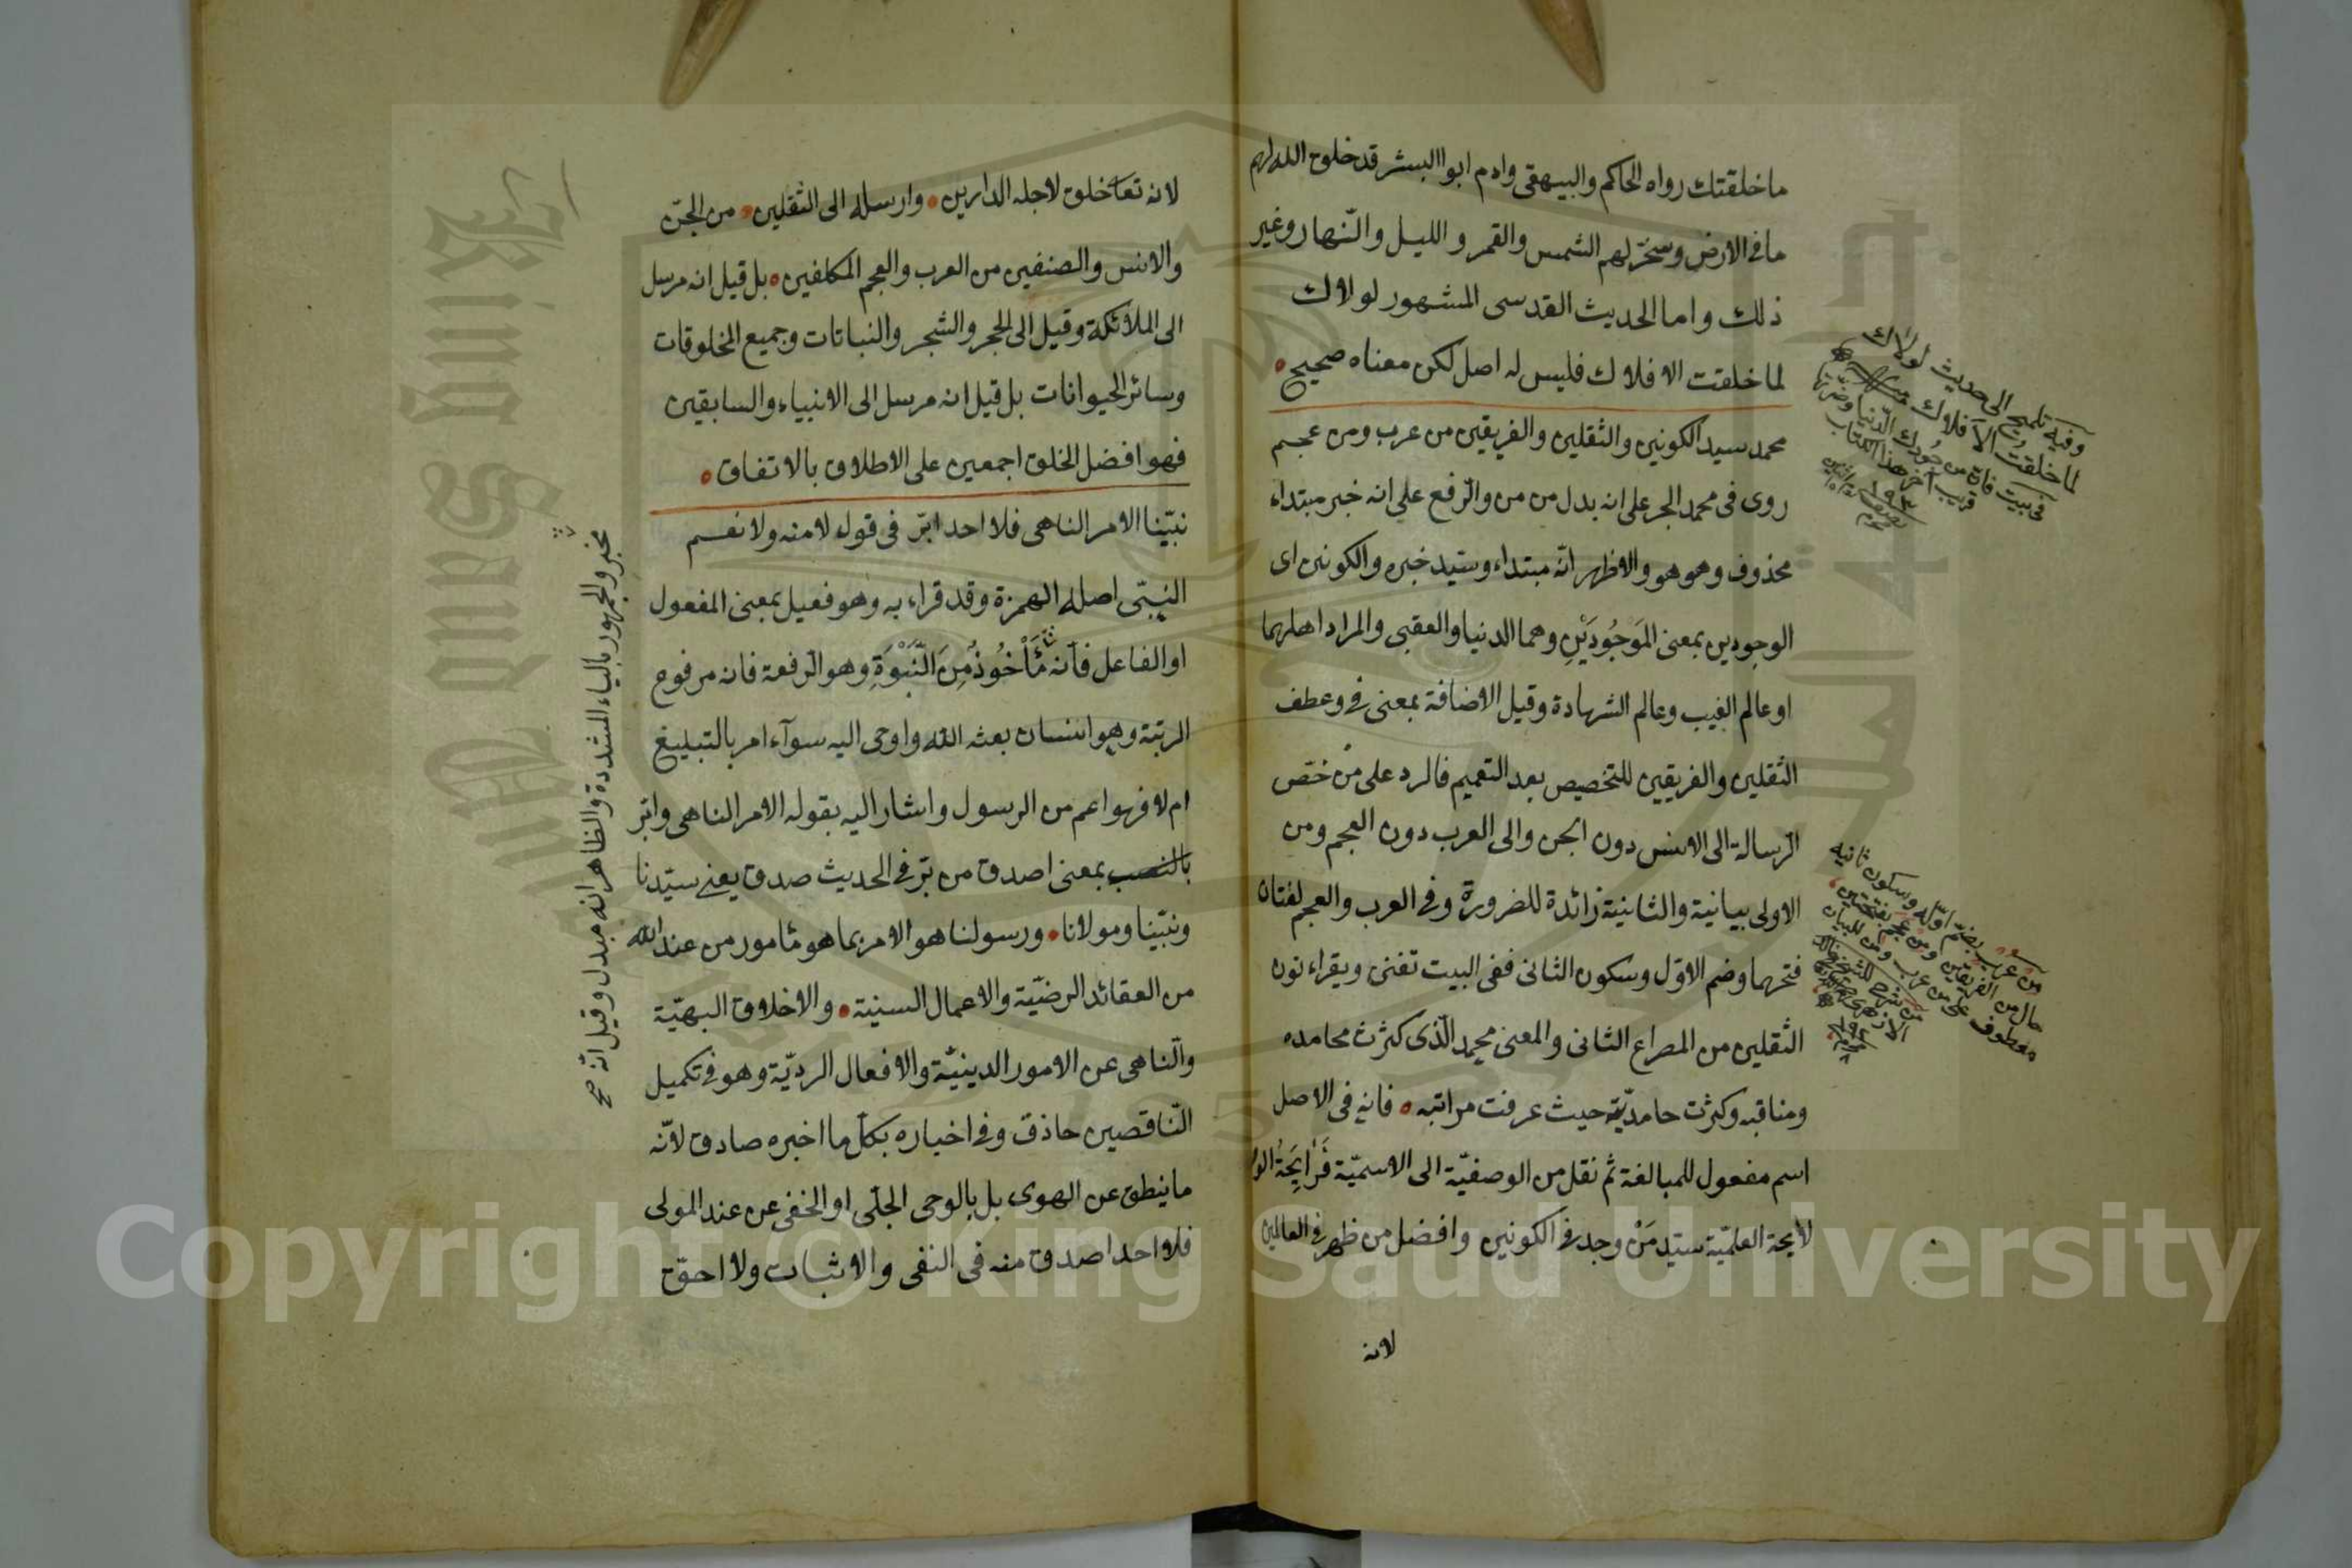 ما خلقتك رواه الحاكم والبيهقى وادم ابوا البشر قد خلق الله لهم
ما فى الارض وسخر لهم الشمس والقمر والليل والنّهار وغير
ذلك واما الحديث القدسى المشهور لولاك
لما خلقت الافلاك فليس له اصل لكن معناه صحيح
محمد سيد الكونين والثقلين والفريقين من عرب ومن عجم
روى فى محمد الجر على انه بدل من من والرّفع على انه خبر مبتداء
محذوف وهو هو والاظهر انّه مبتداء وسيّد خبره والكونين اى
الوجودين بمعنى المَوْجُودَيْنِ وهما الدنيا والعقبى والمراد اهلهما
او عالم الغيب وعالم الشهادة وقيل الاضافة بمعنى فى وعطف
الثقلين والفريقين للتخصيص بعد التعميم فالرد على من خصّ
الرّسالة الى الانس دون الجن والى العرب دون العجم ومن
الاولى بيانية والثانية زائدة للضرورة وفى العرب والعجم لغتان
فتحهما وضم الاوّل وسكون الثانى ففى البيت تفنن ويقراء نون
الثقلين من المصراع الثانى والمعنى محمد الّذى كثرت محامده
ومناقبه وكثرت حامديّته حيث عرفت مراتبه فانه فى الاصل
اسم مفعول للمبالغة ثم نقل من الوصفيّة الى الاسميّة
لايحة العلميّة سيّد مَنْ وجد فى الكونين وافضل من ظهر فى العالمين
لانه
وفيه تلميح الى حديث لولاك
لما خلقت الافلاك
فى بيت فان من جودك الدّنيا وضرّتها
قريب آخر هذا الكتاب
من عرب بضمّ اوّله وسكون ثانيه
حال من الفريقين ومن عجم بفتحتين
معطوف على من عرب ومن للبيان
لانه تعا خلق لاجله الدارين وارسله الى الثقلين من الجنّ
والانس والصنفين من العرب والعجم المكلفين بل قيل انه مرسل
الى الملائكة وقيل الى الحجر والشجر والنباتات وجميع المخلوقات
وسائر الحيوانات بل قيل انه مرسل الى الانبياء والسابقين
فهو افضل الخلق اجمعين على الاطلاق بالاتفاق
نبيّنا الامر الناهى فلا احد ابرّ فى قول لا منه ولا نعم
النبىّ اصله الهمزة وقد قراء به وهو فعيل بمعنى المفعول
او الفاعل فانه مَأْخُوذُ مِنَ النَّبْوَةِ وهو الرّفعة فانه مرفوع
الرتبة وهو انسان بعثه الله واوحى اليه سوآء امر بالتبليغ
ام لا فهو اعم من الرسول واشار اليه بقوله الامر الناهى وابرّ
بالنصب بمعنى اصدق من برّ فى الحديث صدق يعنى سيّدنا
ونبيّنا ومولانا ورسولنا هو الامر بما هو مأمور من عند الله
من العقائد الرضيّة والاعمال السنية والاخلاق البهيّة
والنّاهى عن الامور الدينيّة والافعال الرديّة وهو فى تكميل
النّاقصين حاذق وفى اخباره بكل ما اخبره صادق لانّه
ما ينطق عن الهوى بل بالوحى الجلّى او الخفى عن عند المولى
فلا احد اصدق منه فى النفى والاثبات ولا احقّ
مخبر والجمهور بالياء المشددة والظاهر انه مبدل وقيل انّه صح
King Saud University
Copyright © King Saud University